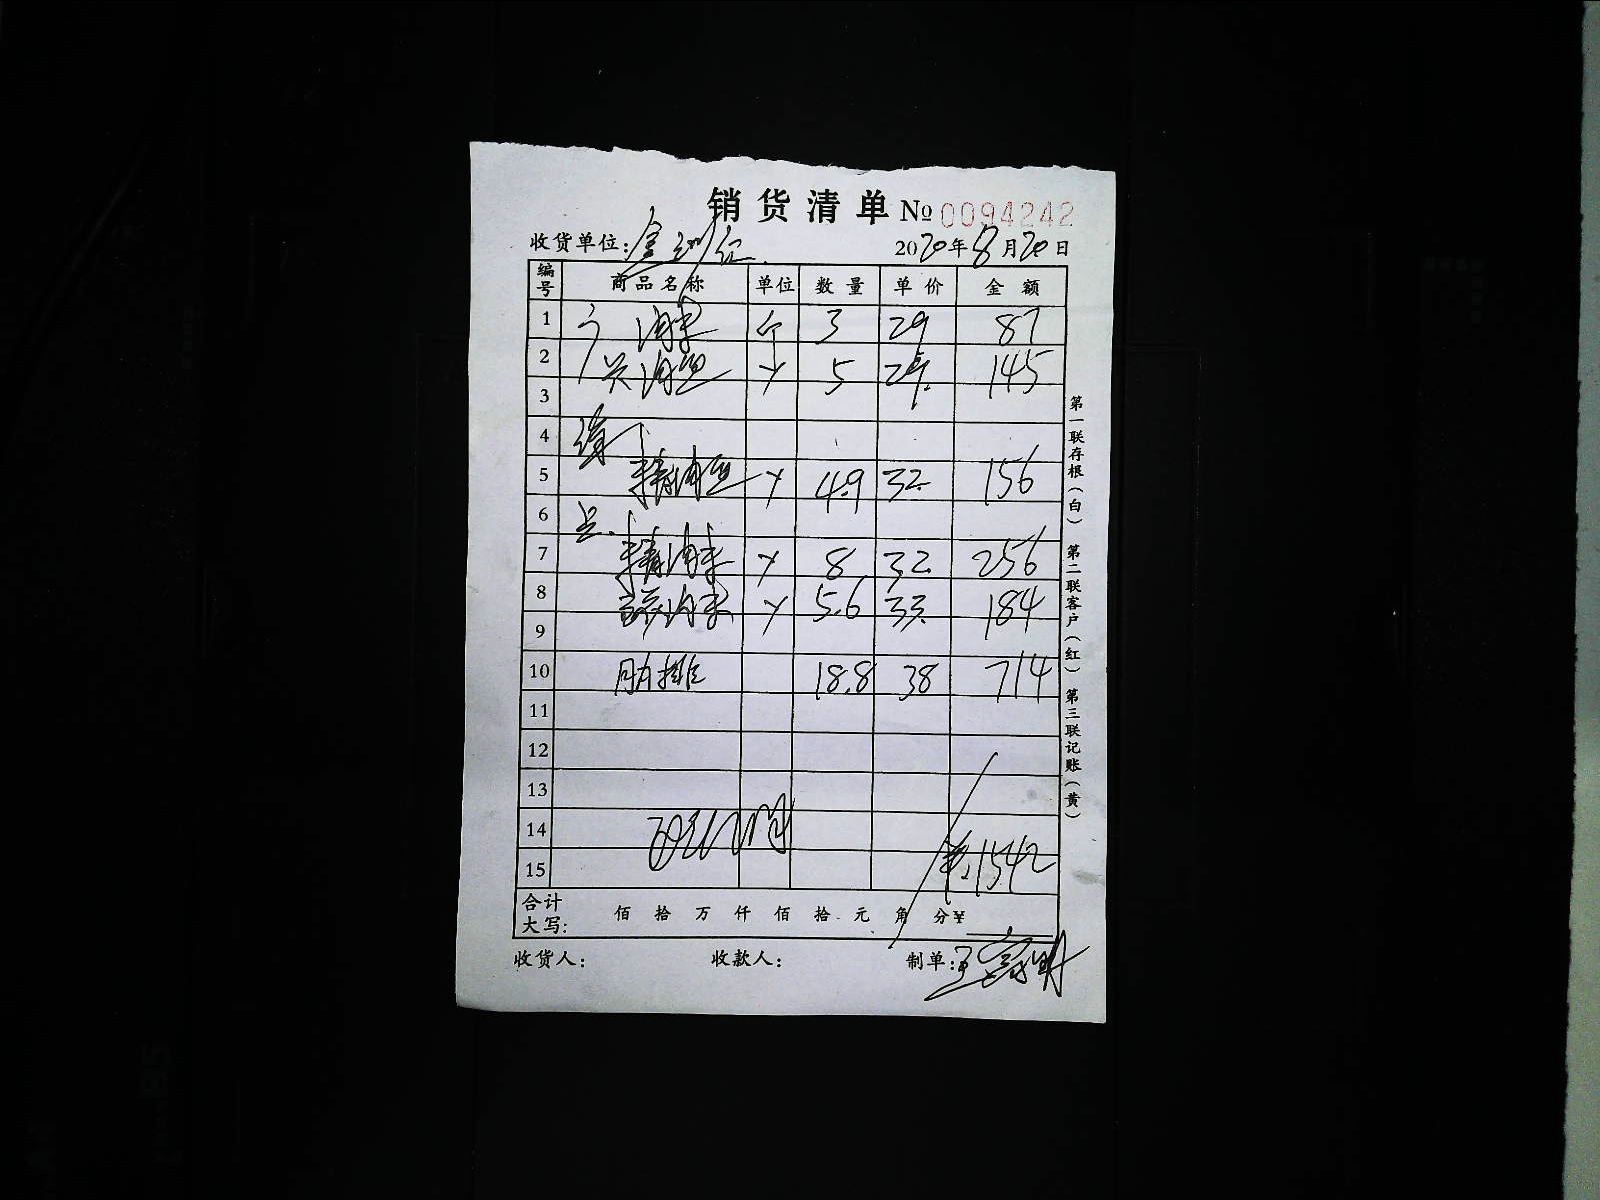 销货清单 № 0094242
收货单位: 2020年8月20日
编号 商品名称 单位 数量 单价 金额
1 肉末 个 3 29 87
2 肉丝 5 29. 145
3
4
5 精肉丝 4.9 32. 156
6
7 精肉末 8 32. 256
8 肉末 5.6 33. 184
9
10 肋排 18.8 38 714
11
12
13
14
15 1542
合计大写: 佰 拾 万 仟 佰 拾 元 角 分 ¥
收货人: 收款人: 制单:
第一联存根(白) 第二联客户(红) 第三联记账(黄)